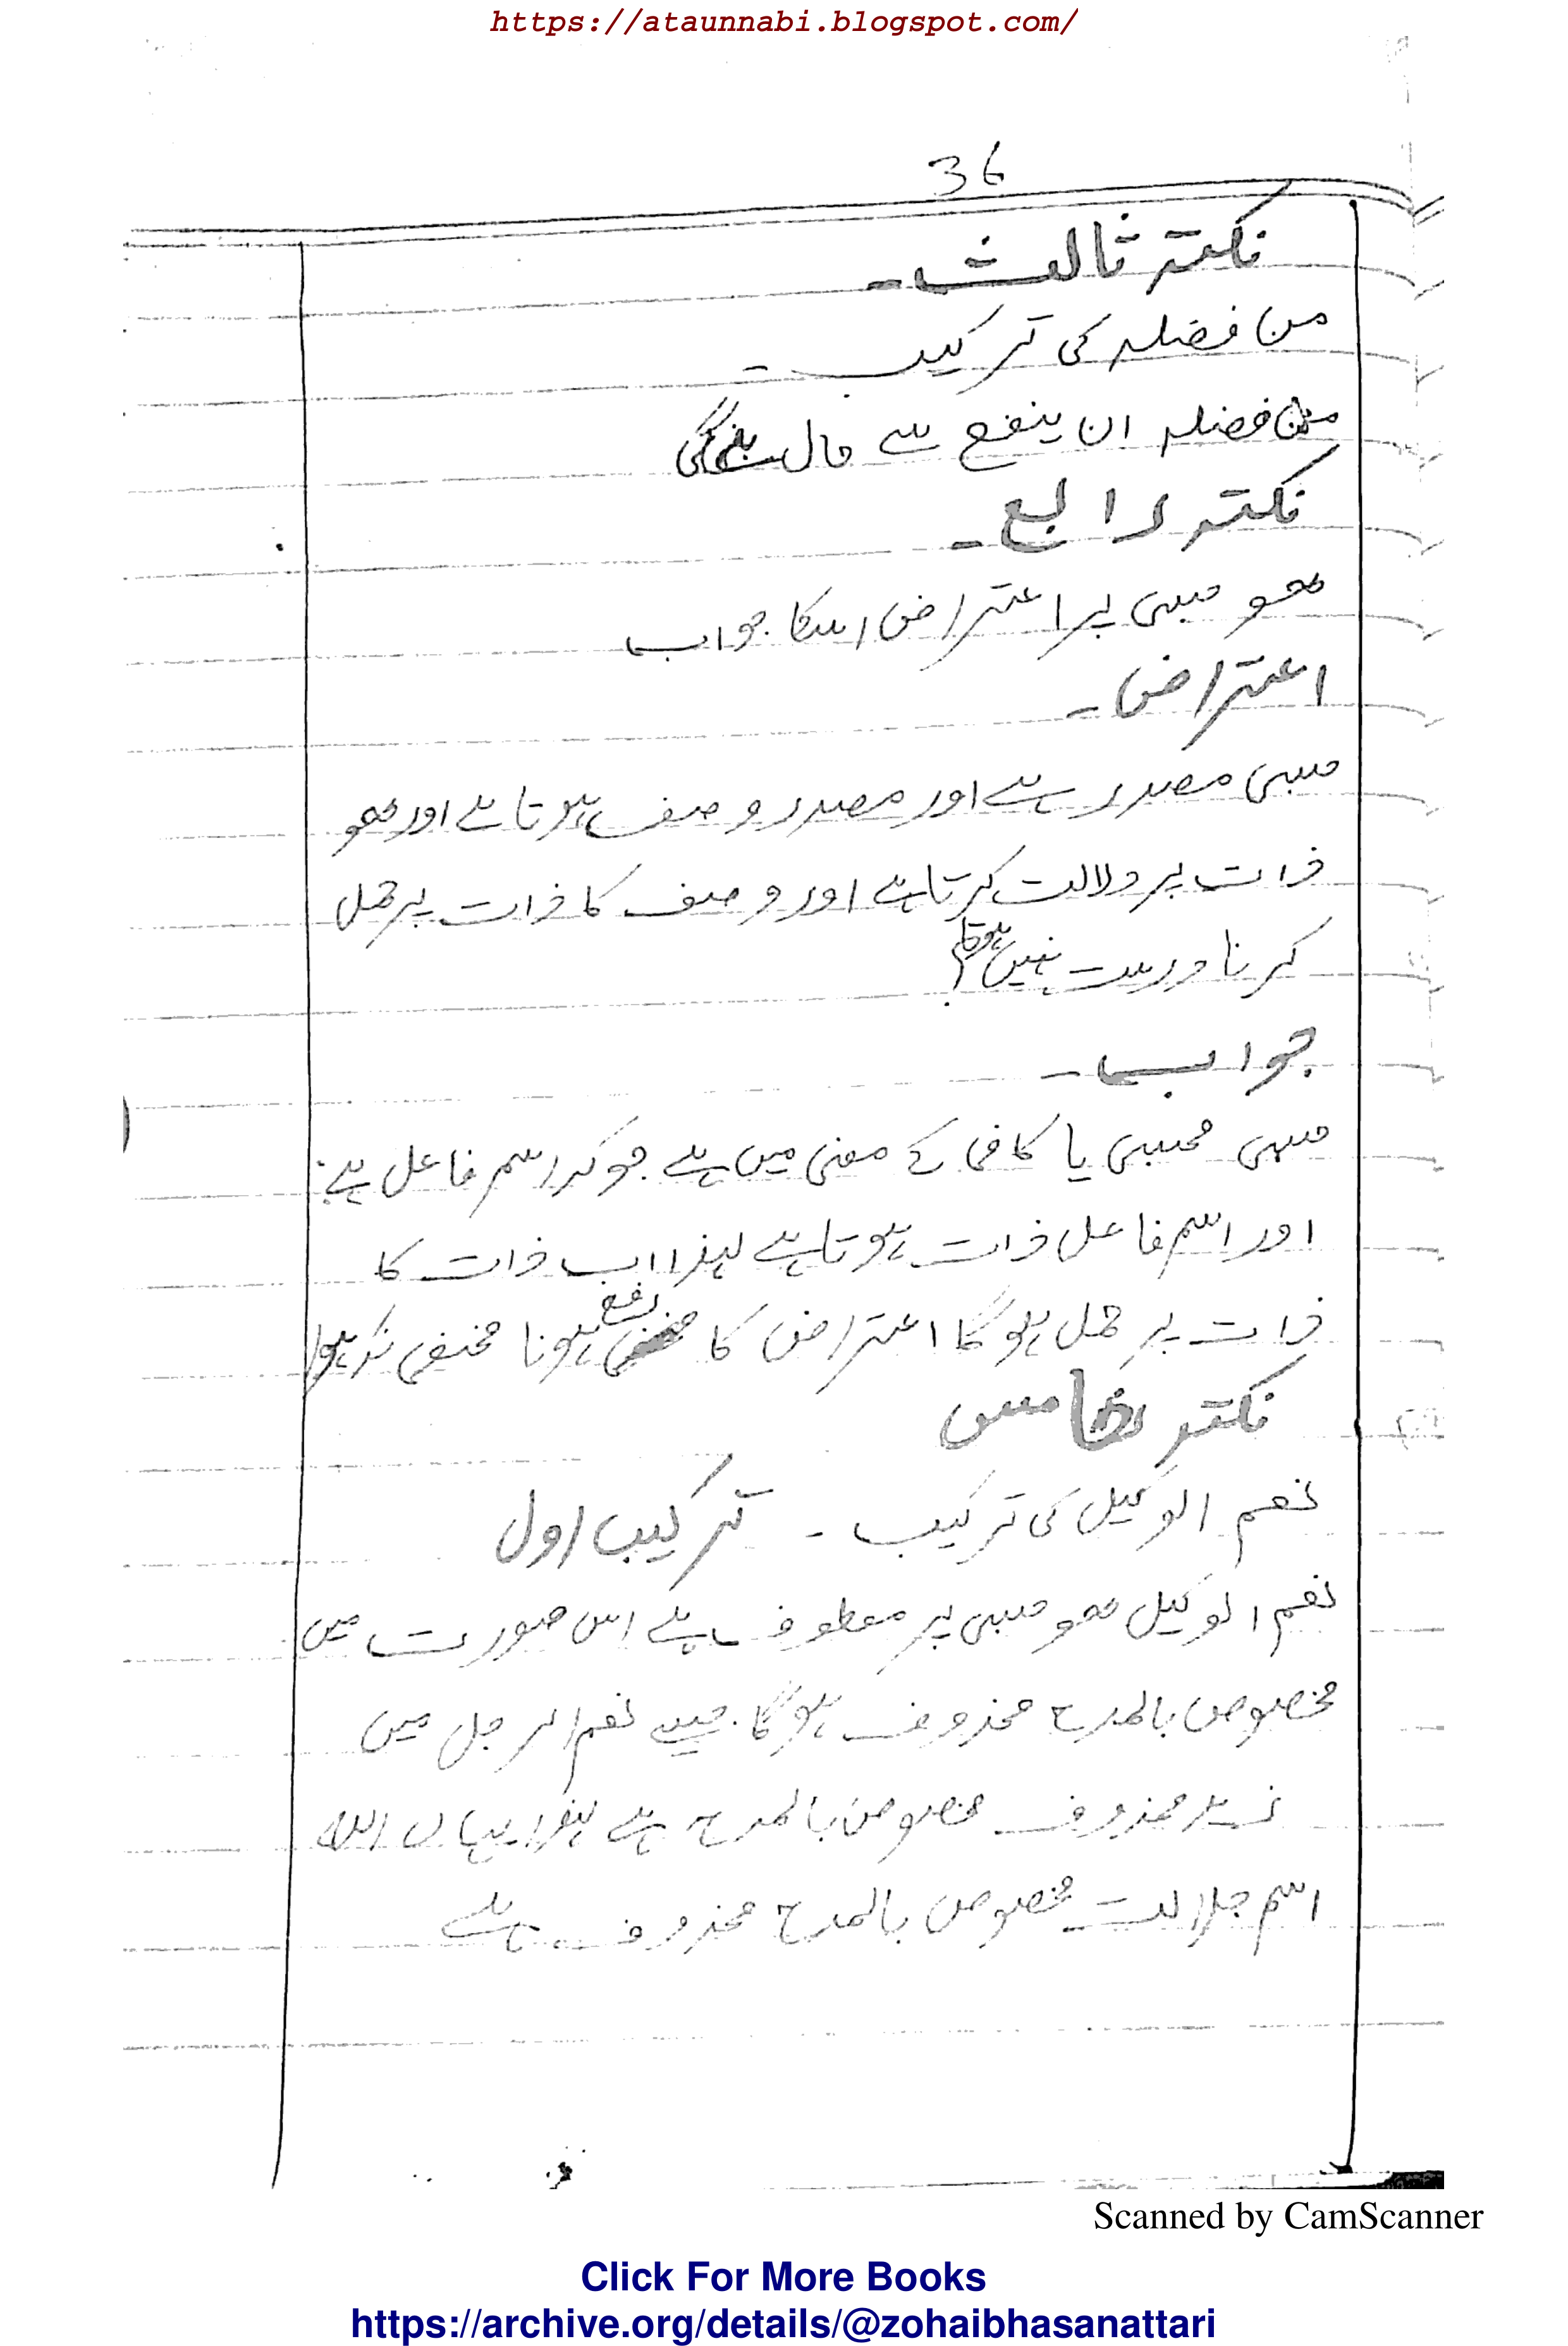 https://ataunnabi.blogspot.com/
36
نکتہ ثالث۔
من فضلہ کی ترکیب۔
من فضلہ ان ینفع سے حال بنے گی
نکتہ رابع۔
ھو حسبی پر اعتراض اسکا جواب
اعتراض۔
حسبی مصدر ہے اور مصدر وصف ہوتا ہے اور ھو
ذات پر دلالت کرتا ہے اور وصف کا ذات پر حمل
کرنا درست نہیں ہوتا؟
جواب۔
حسبی محسبی یا کافی کے معنی میں ہے جو کہ اسم فاعل ہے
اور اسم فاعل ذات ہوتا ہے لہذا اب ذات کا
ذات پر حمل ہوگا اعتراض کا رفع ہونا مخفی نہ ہوا
نکتہ خامس
نعم الوکیل کی ترکیب۔ ترکیب اول
نعم الوکیل ھو حسبی پر معطوف ہے اس صورت میں
مخصوص بالمدح محذوف ہوگا۔ جیسے نعم الرجل میں
زید محذوف مخصوص بالمدح ہے لہذا یہاں اللہ
اسم جلالت مخصوص بالمدح محذوف ہے
Scanned by CamScanner
Click For More Books
https://archive.org/details/@zohaibhasanattari